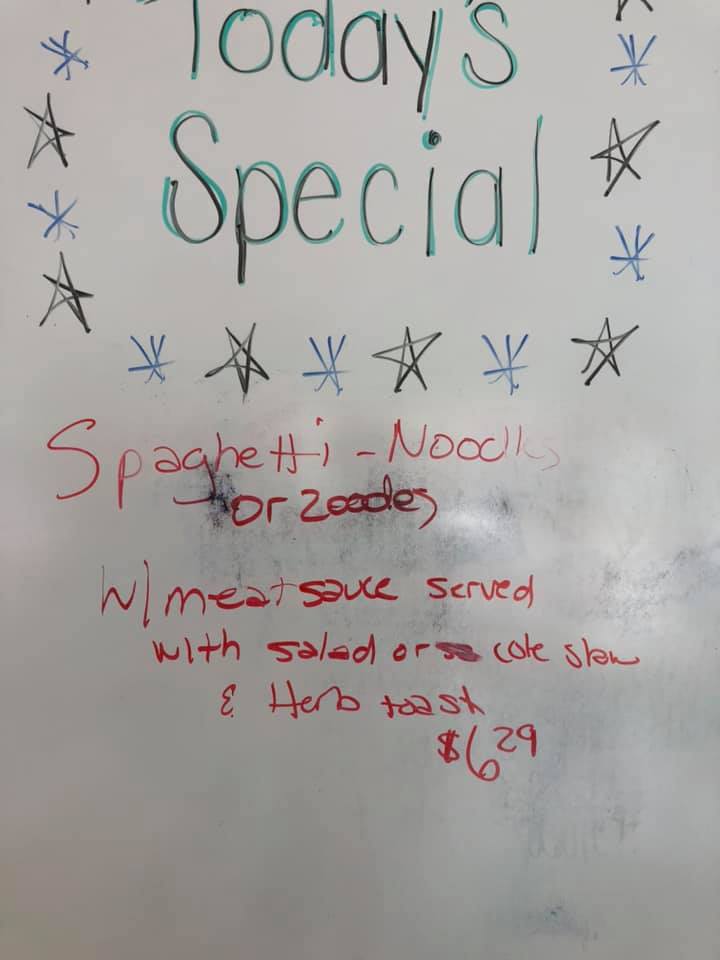 Today's
Special
Spaghetti - Noodles
or Zoodles
w/ meat sauce served
with salad or cole slaw
& Herb toast
$6 29